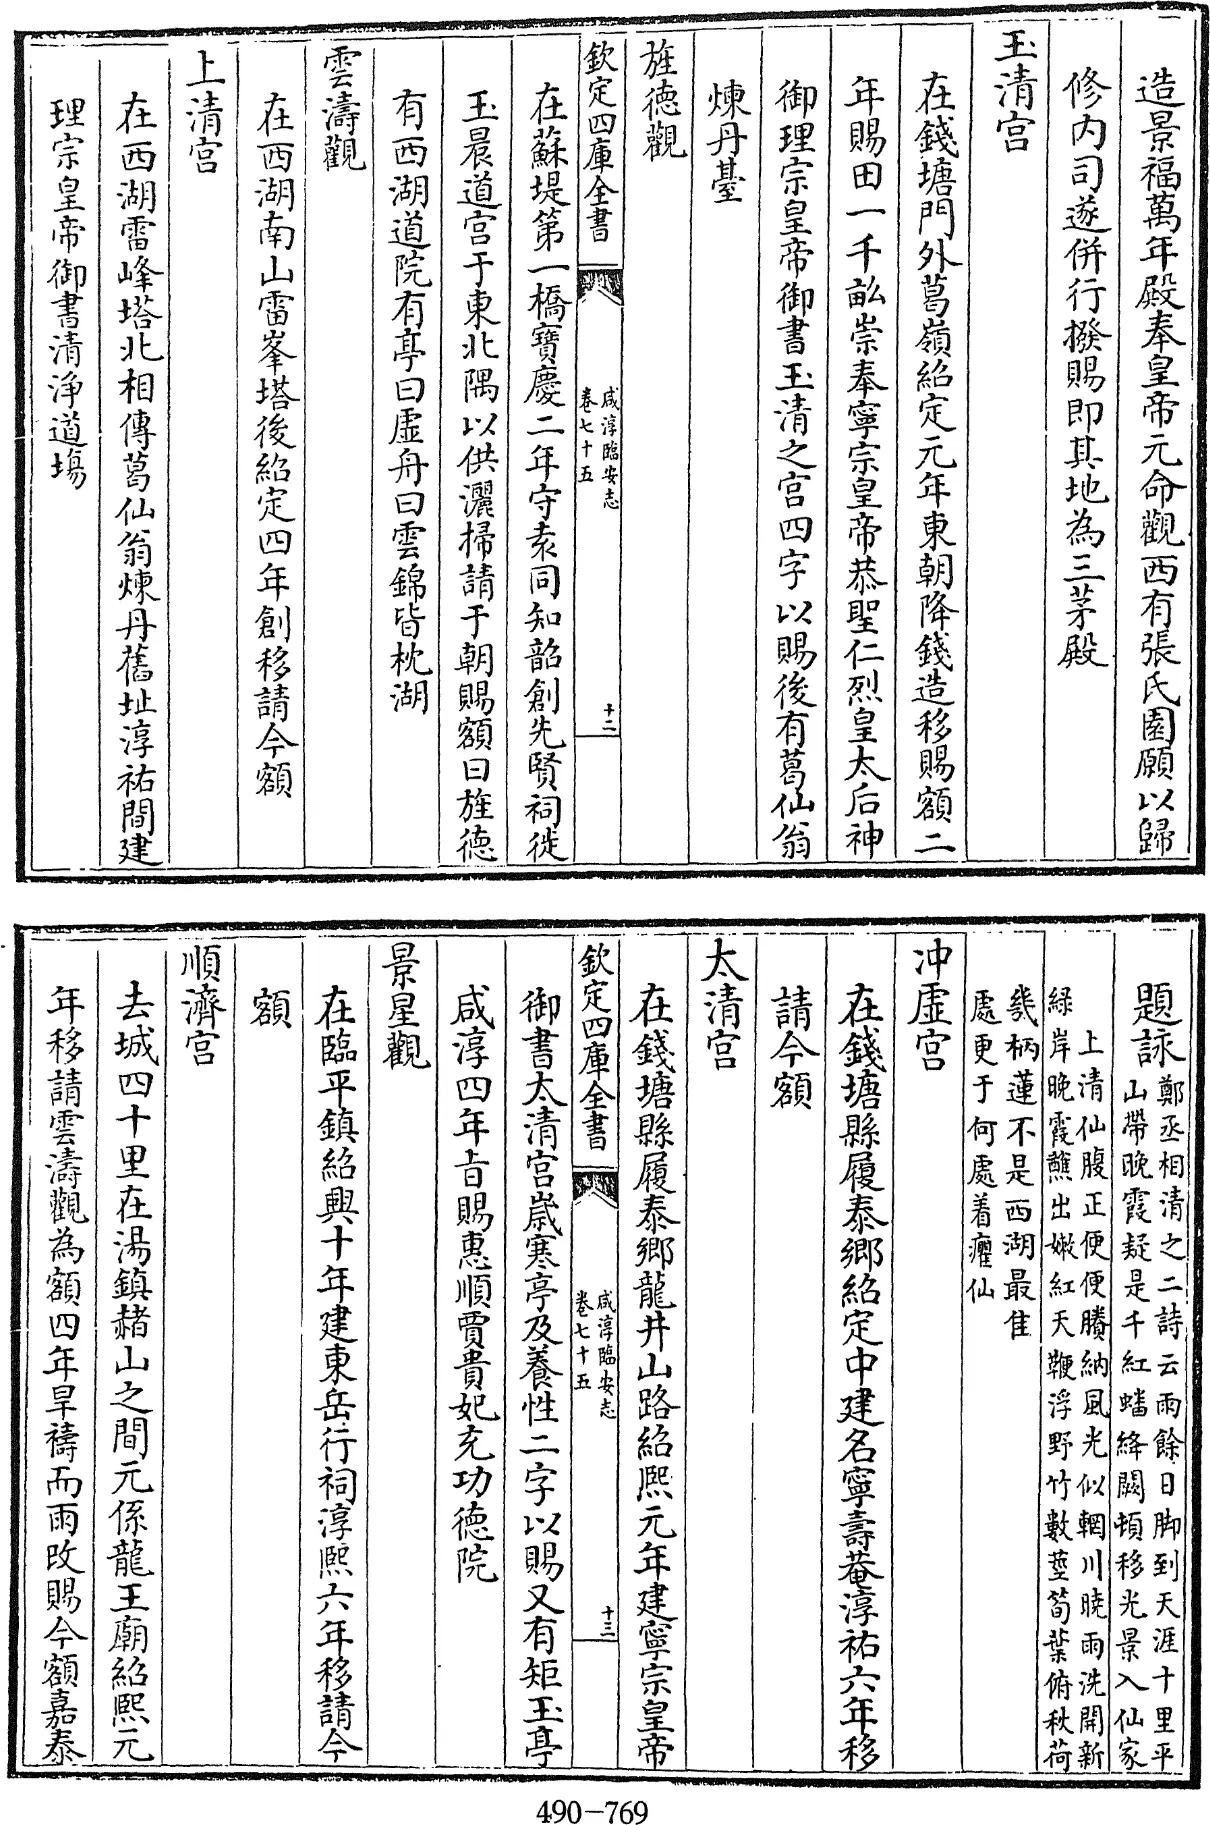 造景福萬年殿奉皇帝元命觀西有張氏園願以歸
修内司遂併行撥賜即其地為三茅殿
玉清宫
在錢塘門外葛嶺紹定元年東朝降錢造移賜額二
年賜田一千畝崇奉寧宗皇帝恭聖仁烈皇太后神
御理宗皇帝御書玉清之宫四字以賜後有葛仙翁
煉丹臺
旌德觀
欽定四庫全書
咸淳臨安志
卷七十五
十二
在蘇堤第一橋寶慶二年守袁同知韶創先賢祠徙
玉晨道宫于東北隅以供灑掃請于朝賜額曰旌德
有西湖道院有亭曰虚舟曰雲錦皆枕湖
雲濤觀
在西湖南山雷峯塔後紹定四年創移請今額
上清宫
在西湖雷峰塔北相傳葛仙翁煉丹舊址淳祐間建
理宗皇帝御書清淨道場
題詠
鄭丞相清之二詩云雨餘日脚到天涯十里平
山帶晚霞疑是千紅蟠絳闕頓移光景入仙家
上清仙腹正便便賸納風光似輞川曉雨洗開新
綠岸晚霞蘸出嫩紅天鞭浮野竹數莖筍葉俯秋荷
幾柄蓮不是西湖最佳
處更于何處着癯仙
冲虚宫
在錢塘縣履泰鄉紹定中建名寧壽菴淳祐六年移
請今額
太清宫
在錢塘縣履泰鄉龍井山路紹熙元年建寧宗皇帝
欽定四庫全書
咸淳臨安志
卷七十五
十三
御書太清宫歲寒亭及養性二字以賜又有矩玉亭
咸淳四年㫖賜惠順賈貴妃充功德院
景星觀
在臨平鎮紹興十年建東岳行祠淳熙六年移請今
額
順濟宫
去城四十里在湯鎮赭山之間元係龍王廟紹熙元
年移請雲濤觀為額四年旱禱而雨改賜今額嘉泰
490-769